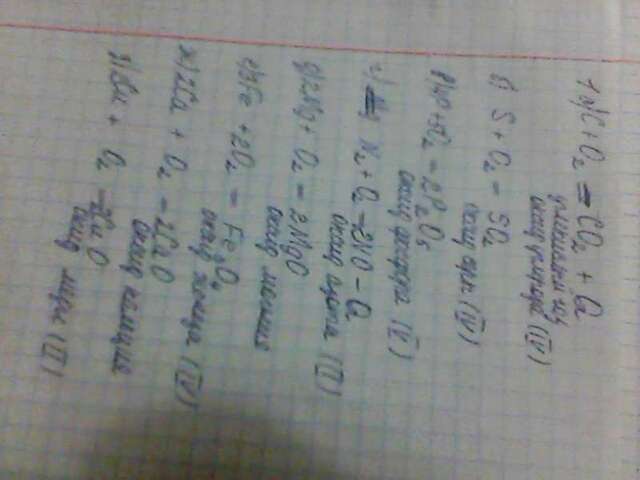 1 а) C + O₂ = CO₂ + Q
углекислый газ
оксид углерода (IV)
б) S + O₂ = SO₂
оксид серы (IV)
в) 4P + 5O₂ = 2P₂O₅
оксид фосфора (V)
г) N₂ + O₂ = 2NO - Q
оксид азота (II)
д) 2Mg + O₂ = 2MgO
оксид магния
е) 3Fe + 2O₂ = Fe₃O₄
оксид железа (IV)
ж) 2Ca + O₂ = 2CaO
оксид кальция
з) 2Cu + O₂ = 2CuO
оксид меди (II)